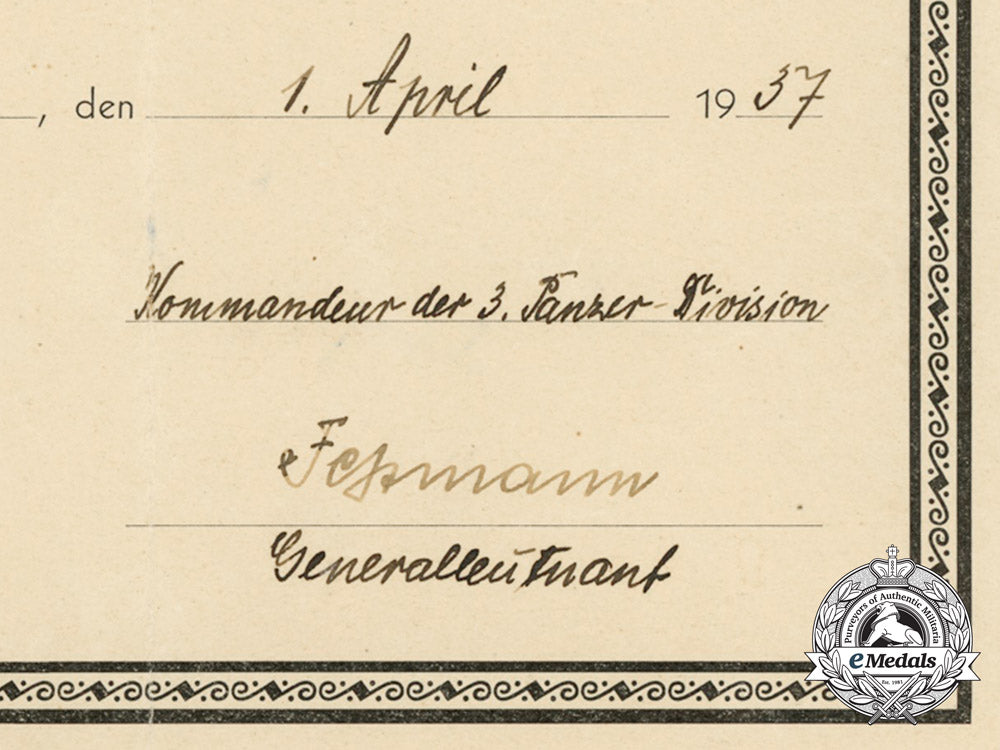 , den 1. April 1937
Kommandeur der 3. Panzer-Division
Feßmann
Generalleutnant
Purveyors of Authentic Militaria
eMedals
Est. 1981